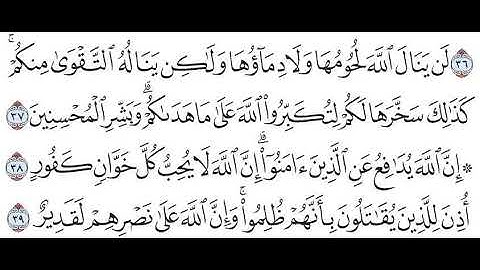 ٣٦ لَن يَنَالَ ٱللَّهَ لُحُومُهَا وَلَا دِمَآؤُهَا وَلَٰكِن يَنَالُهُ ٱلتَّقْوَىٰ مِنكُمْۚ
كَذَٰلِكَ سَخَّرَهَا لَكُمْ لِتُكَبِّرُوا۟ ٱللَّهَ عَلَىٰ مَا هَدَىٰكُمْۗ وَبَشِّرِ ٱلْمُحْسِنِينَ ٣٧
۞ إِنَّ ٱللَّهَ يُدَٰفِعُ عَنِ ٱلَّذِينَ ءَامَنُوٓا۟ۗ إِنَّ ٱللَّهَ لَا يُحِبُّ كُلَّ خَوَّانٍ كَفُورٍ ٣٨
أُذِنَ لِلَّذِينَ يُقَٰتَلُونَ بِأَنَّهُمْ ظُلِمُوا۟ۚ وَإِنَّ ٱللَّهَ عَلَىٰ نَصْرِهِمْ لَقَدِيرٌ ٣٩